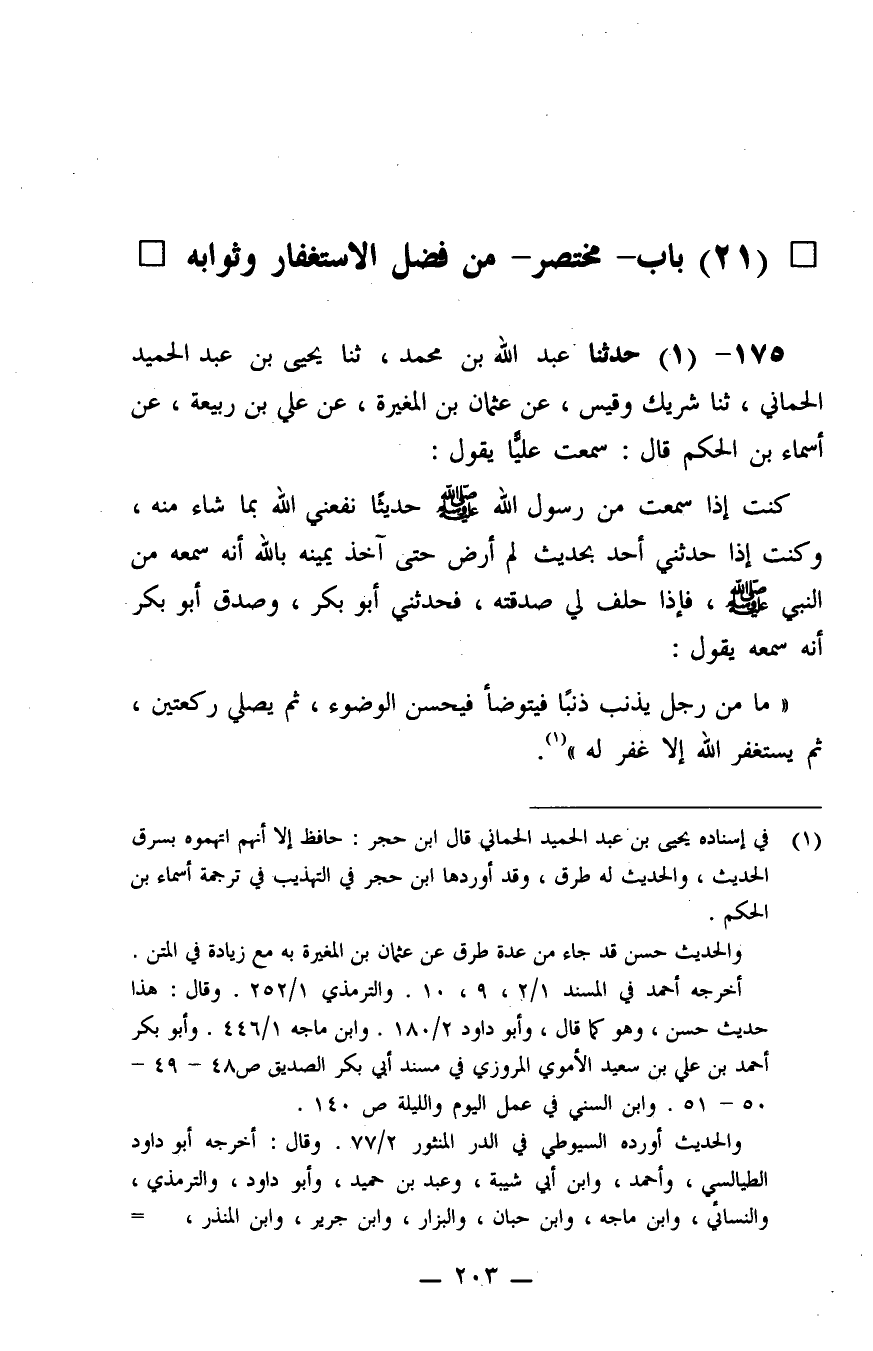 □ (٢١) باب- مختصر- من فضل الاستغفار وثوابه □
١٧٥- (١) حدثنا عبد الله بن محمد ، ثنا يحيى بن عبد الحميد
الحماني ، ثنا شريك وقيس ، عن عثمان بن المغيرة ، عن علي بن ربيعة ، عن
أسماء بن الحكم قال : سمعت عليًّا يقول :
كنت إذا سمعت من رسول الله ﷺ حديثًا نفعني الله بما شاء منه ،
وكنت إذا حدثني أحد بحديث لم أرض حتى آخذ يمينه بالله أنه سمعه من
النبي ﷺ ، فإذا حلف لي صدقته ، فحدثني أبو بكر ، وصدق أبو بكر
أنه سمعه يقول :
« ما من رجل يذنب ذنبًا فيتوضأ فيحسن الوضوء ، ثم يصلي ركعتين ،
ثم يستغفر الله إلا غفر له »(١).
(١) في إسناده يحيى بن عبد الحميد الحماني قال ابن حجر : حافظ إلا أنهم اتهموه بسرق
الحديث ، والحديث له طرق ، وقد أوردها ابن حجر في التهذيب في ترجمة أسماء بن
الحكم .
والحديث حسن قد جاء من عدة طرق عن عثمان بن المغيرة به مع زيادة في المتن .
أخرجه أحمد في المسند ٢/١ ، ٩ ، ١٠ . والترمذي ٢٥٢/١ . وقال : هذا
حديث حسن ، وهو كما قال ، وأبو داود ١٨٠/٢ . وابن ماجه ٤٤٦/١ . وأبو بكر
أحمد بن علي بن سعيد الأموي المروزي في مسند أبي بكر الصديق ص٤٨ - ٤٩ -
٥٠ - ٥١ . وابن السني في عمل اليوم والليلة ص ١٤٠ .
والحديث أورده السيوطي في الدر المنثور ٧٧/٢ . وقال : أخرجه أبو داود
الطيالسي ، وأحمد ، وابن أبي شيبة ، وعبد بن حميد ، وأبو داود ، والترمذي ،
والنسائي ، وابن ماجه ، وابن حبان ، والبزار ، وابن جرير ، وابن المنذر ، =
— ٢٠٣ —